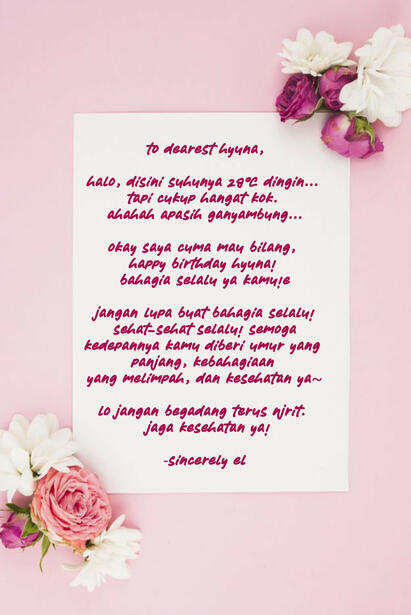 to dearest hyuna,
halo, disini suhunya 28°C dingin...
tapi cukup hangat kok.
ahahah apasih ganyambung...
okay saya cuma mau bilang,
happy birthday hyuna!
bahagia selalu ya kamu!e
jangan lupa buat bahagia selalu!
sehat-sehat selalu! semoga
kedepannya kamu diberi umur yang
panjang, kebahagiaan
yang melimpah, dan kesehatan ya~
lo jangan begadang terus njrit.
jaga kesehatan ya!
-sincerely el